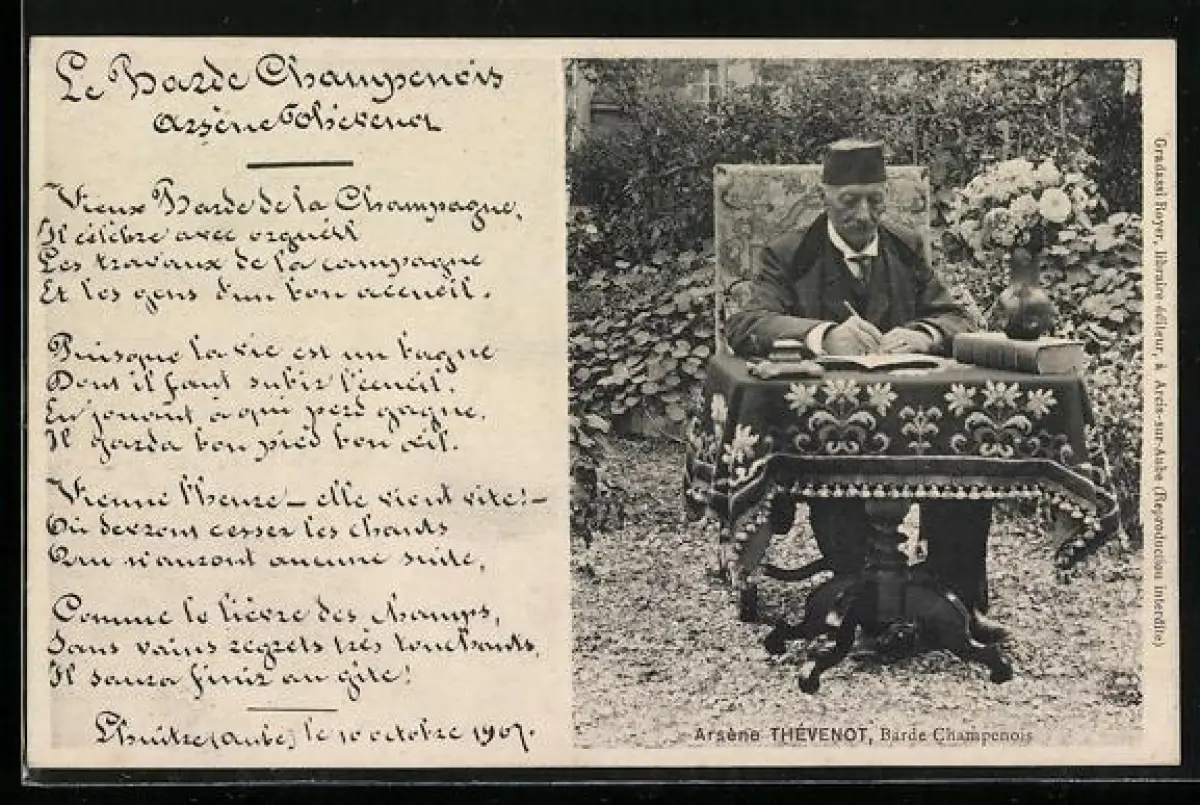 Le Barde Champenois
Arsène Thévenot
Vieux Barde de la Champagne,
Il célèbre avec orgueil
Les travaux de la campagne
Et les gens d'un bon accueil.
Puisque la vie est un bagne
Dont il faut subir l'écueil,
En jouant à qui perd gagne,
Il garda bon pied bon œil.
Vienne l'heure _ elle vient vite! _
Où devront cesser les chants
Qui n'auront aucune suite,
Comme le lièvre des champs,
Sans vains regrets très touchants,
Il saura finir au gîte!
Lhuitre (Aube) le 10 octobre 1907.
Arsène THÉVENOT, Barde Champenois
Gradassi Royer, libraire-éditeur, à Arcis-sur-Aube (Reproduction interdite)